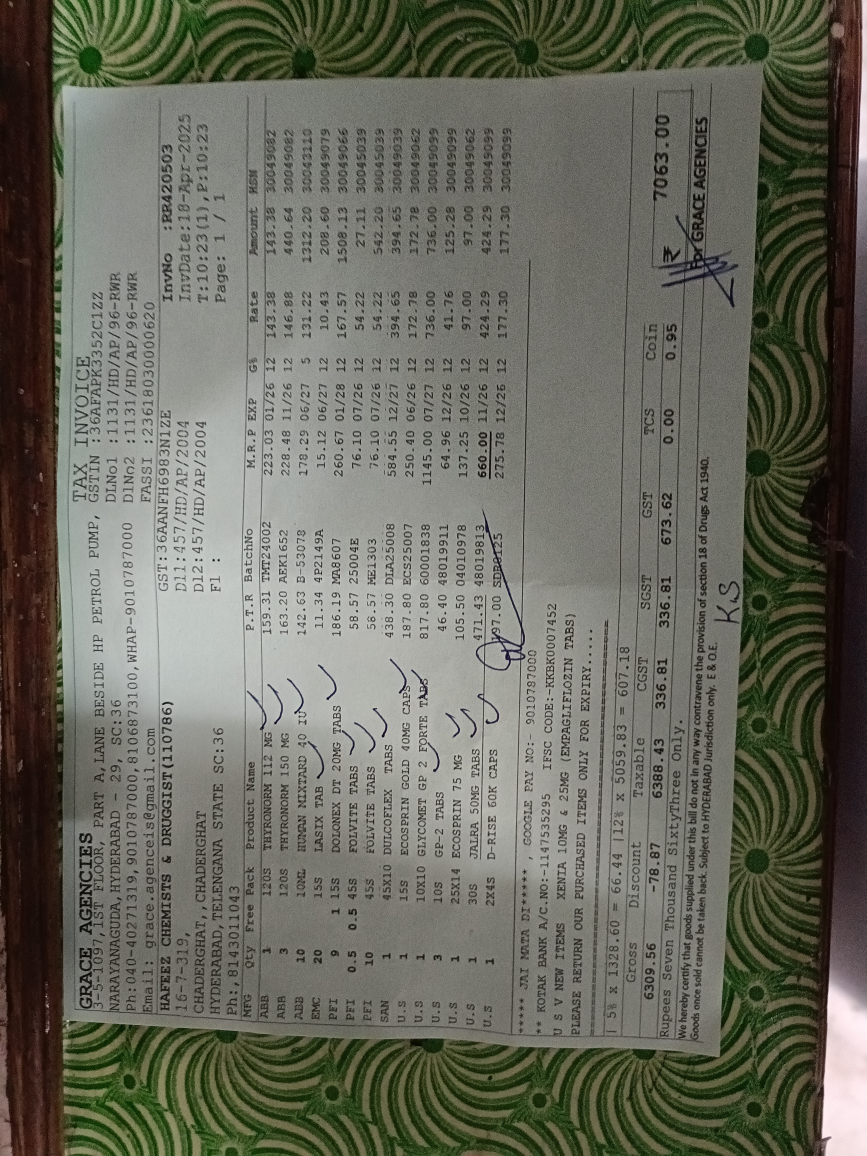 TAX INVOICE
GRACE AGENCIES
3-5-1097,1ST FLOOR, PART A,LANE BESIDE HP PETROL PUMP, GSTIN :36AFAPK3352C1ZZ
NARAYANAGUDA,HYDERABAD - 29, SC:36 DLNo1 :1131/HD/AP/96-RWR
Ph:040-40271319,9010787000,8106873100,WHAP-9010787000 DlNo2 :1131/HD/AP/96-RWR
Email: grace.agenceis@gmail.com FASSI :23618030000620
HAFEEZ CHEMISTS & DRUGGIST(110786) GST:36AANFH6983N1ZE InvNo :RR420503
16-7-319, Dl1:457/HD/AP/2004 InvDate:18-Apr-2025
CHADERGHAT,,CHADERGHAT Dl2:457/HD/AP/2004 T:10:23(1),P:10:23
HYDERABAD,TELENGANA STATE SC:36 Fl : Page: 1 / 1
Ph:,8143011043
MFG Qty Free Pack Product Name P.T.R BatchNo M.R.P EXP G% Rate Amount HSN
ABB 1 120S THYRONORM 112 MG 159.31 TMT24002 223.03 01/26 12 143.38 143.38 30049082
ABB 3 120S THYRONORM 150 MG 163.20 AEK1652 228.48 11/26 12 146.88 440.64 30049082
ABB 10 10ML HUMAN MIXTARD 40 IU 142.63 B-53078 178.29 06/27 5 131.22 1312.20 30043110
EMC 20 15S LASIX TAB 11.34 4P2149A 15.12 06/27 12 10.43 208.60 30049079
PFI 9 1 15S DOLONEX DT 20MG TABS 186.19 MA8607 260.67 01/28 12 167.57 1508.13 30049066
PFI 0.5 0.5 45S FOLVITE TABS 58.57 25004E 76.10 07/26 12 54.22 27.11 30045039
PFI 10 45S FOLVITE TABS 58.57 ME1303 76.10 07/26 12 54.22 542.20 30045039
SAN 1 45X10 DULCOFLEX TABS 438.30 DLA25008 584.55 12/27 12 394.65 394.65 30049039
U.S 1 15S ECOSPRIN GOLD 40MG CAPS 187.80 ECS25007 250.40 06/26 12 172.78 172.78 30049062
U.S 1 10X10 GLYCOMET GP 2 FORTE TABS 817.80 60001838 1145.00 07/27 12 736.00 736.00 30049099
U.S 3 10S GP-2 TABS 46.40 48019911 64.96 12/26 12 41.76 125.28 30049099
U.S 1 25X14 ECOSPRIN 75 MG 105.50 04010978 137.25 10/26 12 97.00 97.00 30049062
U.S 1 30S JALRA 50MG TABS 471.43 48019813 660.00 11/26 12 424.29 424.29 30049099
U.S 1 2X4S D-RISE 60K CAPS 197.00 275.78 12/26 12 177.30 177.30 30049099
***** JAI MATA DI***** , GOOGLE PAY NO:- 9010787000
** KOTAK BANK A/C.NO:-1147535295 IFSC CODE:-KKBK0007452
U S V NEW ITEMS XENIA 10MG & 25MG (EMPAGLIFLOZIN TABS)
PLEASE RETURN OUR PURCHASED ITEMS ONLY FOR EXPIRY.....
| 5% x 1328.60 = 66.44 |12% x 5059.83 = 607.18
Gross Discount Taxable CGST SGST GST TCS Coin
6309.56 -78.87 6388.43 336.81 336.81 673.62 0.00 0.95 ₹ 7063.00
Rupees Seven Thousand SixtyThree Only.
We hereby certify that goods supplied under this bill do not in any way contravene the provision of section 18 of Drugs Act 1940.
Goods once sold cannot be taken back. Subject to HYDERABAD Jurisdiction only. E & O.E. For GRACE AGENCIES